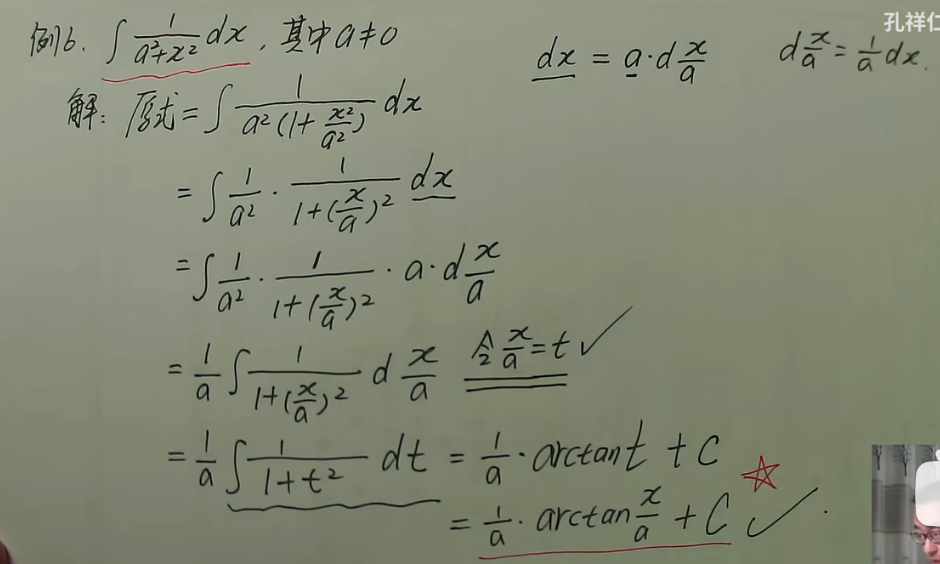 孔祥仁
例6. ∫ 1/(a²+x²) dx, 其中 a≠0
dx = a·d x/a
d x/a = 1/a dx.
解: 原式 = ∫ 1/(a²(1+x²/a²)) dx
= ∫ 1/a² · 1/(1+(x/a)²) dx
= ∫ 1/a² · 1/(1+(x/a)²) · a·d x/a
= 1/a ∫ 1/(1+(x/a)²) d x/a 令 x/a = t ✓
= 1/a ∫ 1/(1+t²) dt = 1/a · arctan t + C
= 1/a · arctan x/a + C ✓